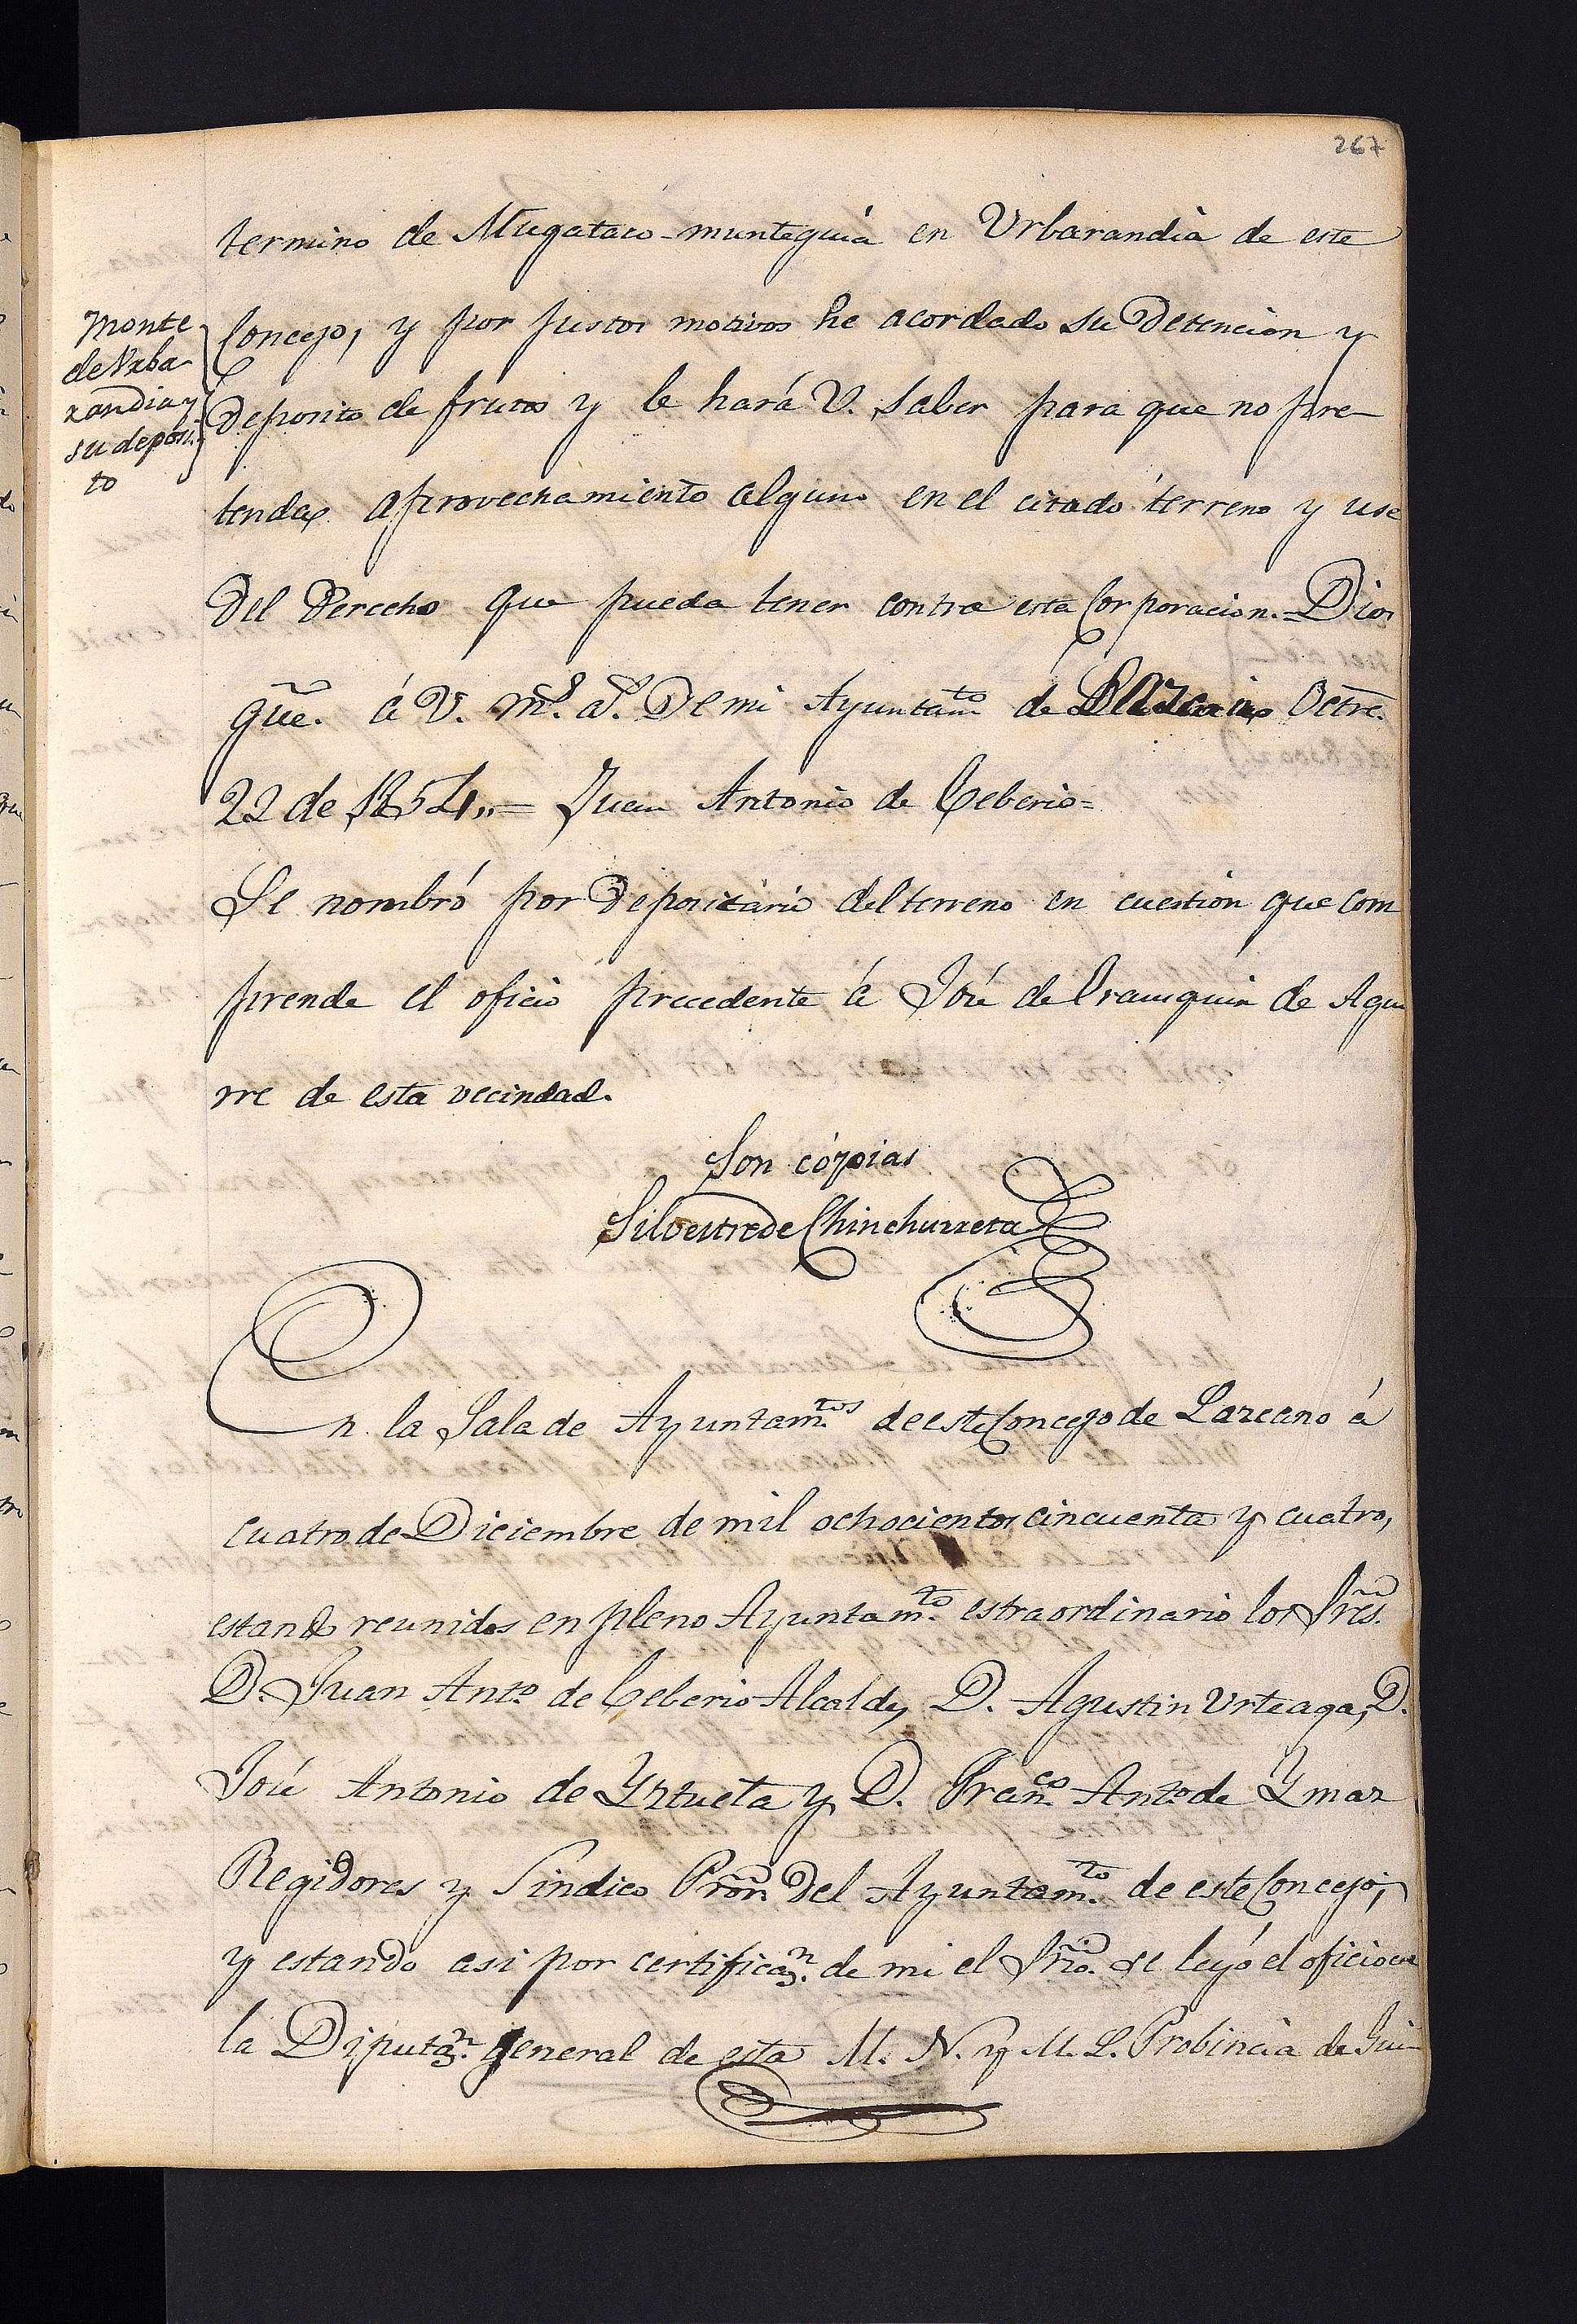 267
termino de Mugataco-munteguia en Urbarandia de este
Monte
de Urba
randia y
su deposi-
to
Concejo, y por justos motivos he acordado su Detencion y
Deposito de frutos y le hará V. saber para que no pre-
tenda aprovechamiento alguno en el citado terreno y use
Del Derecho que pueda tener contra esta Corporacion. = Dios
gũe. á V. m.s a.s De mi Ayuntam.to de Lazcano Octre.
22 de 1854,, = Juan Antonio de Ceberio =
Se nombró por Depositario del terreno en cuestion que com
prende el oficio precedente á José de de Agui
rre de esta vecindad.
Son cópias
Silvestre de Chinchurreta
En la Sala de Ayuntam.tos de este Concejo de Lazcano á
cuatro de Diciembre de mil ochocientos cincuenta y cuatro,
estando reunidos en pleno Ayuntam.to estraordinario los Sres.
D. Juan Ant.o de Ceberio Alcalde, D. Agustin Urteaga, D.
José Antonio de Yztueta y D. Fran.co Ant.o de Ymaz
Regidores y Sindico Prõr. Del Ayuntam.to de este Concejo;
y estando asi por certificaz.n de mi el Srio. se leyó el oficio en
la Diputaz.n general de esta M. N. y M. L. Probincia de Gui-